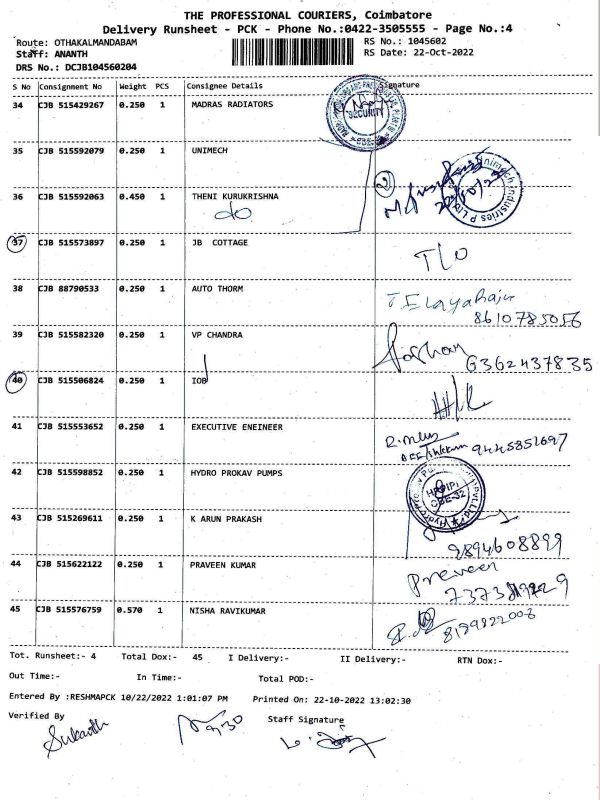 THE PROFESSIONAL COURIERS, Coimbatore
Delivery Runsheet - PCK - Phone No.:0422-3505555 - Page No.:4
Route: OTHAKALMANDABAM RS No.: 1045602
Staff: ANANTH RS Date: 22-Oct-2022
DRS No.: DCJB104560204
S No Consignment No Weight PCS Consignee Details Signature
34 CJB 515429267 0.250 1 MADRAS RADIATORS
SECURITY
35 CJB 515592079 0.250 1 UNIMECH
36 CJB 515592063 0.450 1 THENI KURUKRISHNA
do
37 CJB 515573897 0.250 1 JB COTTAGE
T/O
38 CJB 88790533 0.250 1 AUTO THORM
T. Elayaraja
8610785056
39 CJB 515582320 0.250 1 VP CHANDRA
G362437835
40 CJB 515506824 0.250 1 IOB
41 CJB 515553652 0.250 1 EXECUTIVE ENEINEER
9445851697
42 CJB 515598852 0.250 1 HYDRO PROKAV PUMPS
43 CJB 515269611 0.250 1 K ARUN PRAKASH
9894608899
44 CJB 515622122 0.250 1 PRAVEEN KUMAR
Praveen
45 CJB 515576759 0.570 1 NISHA RAVIKUMAR
Tot. Runsheet:- 4 Total Dox:- 45 I Delivery:- II Delivery:- RTN Dox:-
Out Time:- In Time:- Total POD:-
Entered By :RESHMAPCK 10/22/2022 1:01:07 PM Printed On: 22-10-2022 13:02:30
Verified By Staff Signature
Sukanth